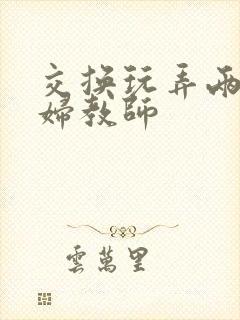 交换玩弄两
婦教師
雲萬里